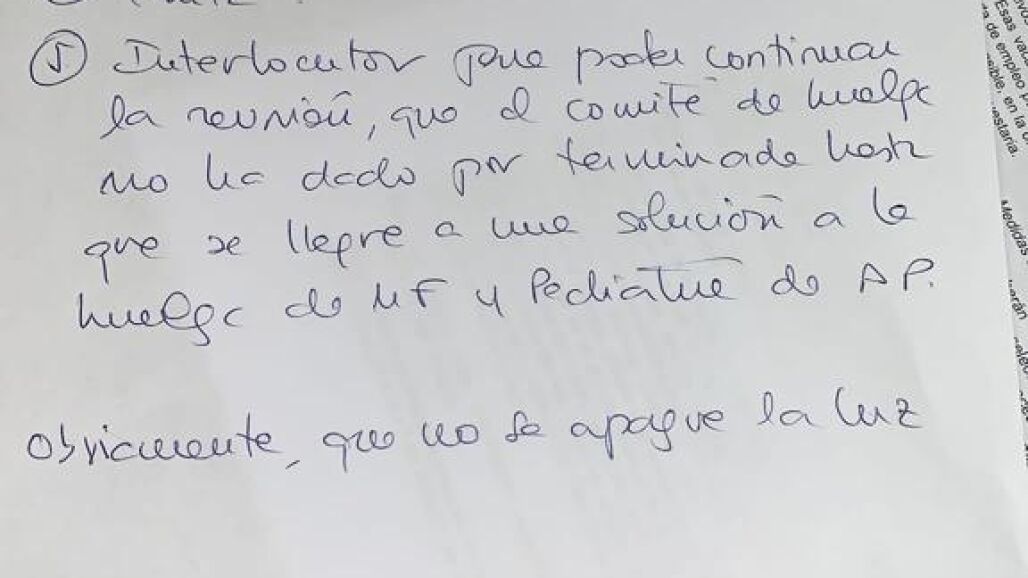 ⑤ Interlocutor para poder continuar
la reunión, que el comité de huelga
no ha dado por terminada hasta
que se llegue a una solución a la
huelga de MF y Pediatría de AP.
Obviamente, que no se apague la luz
Esas vac
de empleo
en la
estaría.
Medidas